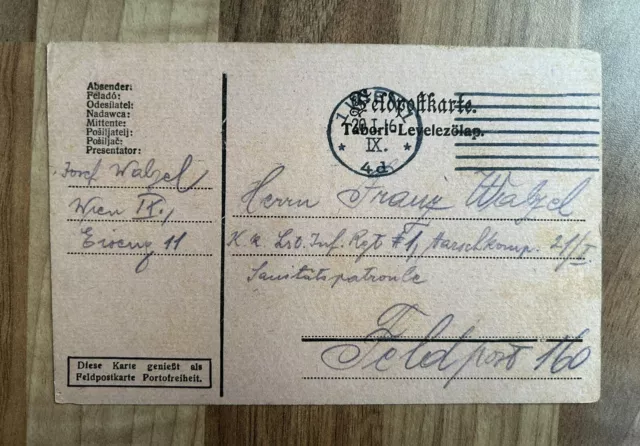 Absender:
Feladó:
Odesílatel:
Nadawca:
Mittente:
Pošiljatelj:
Pošiljač:
Presentator:
Josef Walzel
Wien IX.,
11
Diese Karte genießt als
Feldpostkarte Portofreiheit.
Feldpostkarte.
Tábori Levelezőlap.
20.I.16
IX.
* 4d *
Herrn Franz Walzel
K. k. Inf. Rgt 1, Marschkomp.
Sanitätspatrouille
Feldpost 160